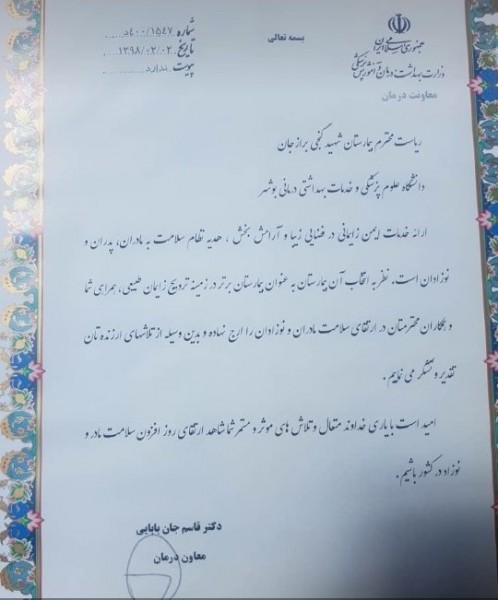 بسمه تعالی
جمهوری اسلامی ایران
وزارت بهداشت، درمان و آموزش پزشکی
معاونت درمان
شماره ۴۰۰/۱۵۴۷د
تاریخ ۱۳۹۸/۰۲/۰۲
پیوست ندارد
ریاست محترم بیمارستان شهید گنجی برازجان
دانشگاه علوم پزشکی و خدمات بهداشتی درمانی بوشهر
ارائه خدمات ایمن زایمانی در فضایی زیبا و آرامش بخش ، هدیه نظام سلامت به مادران، پدران و
نوزادان است. نظر به انتخاب آن بیمارستان به عنوان بیمارستان برتر در زمینه ترویج زایمان طبیعی، همراهی شما
و همکاران محترمتان در ارتقای سلامت مادران و نوزادان را ارج نهاده و بدین وسیله از تلاشهای ارزنده تان
تقدیر و تشکر می نماییم .
امید است با یاری خداوند متعال و تلاش های موثر و مستمر شما شاهد ارتقای روز افزون سلامت مادر و
نوزاد در کشور باشیم .
دکتر قاسم جان بابایی
معاون درمان